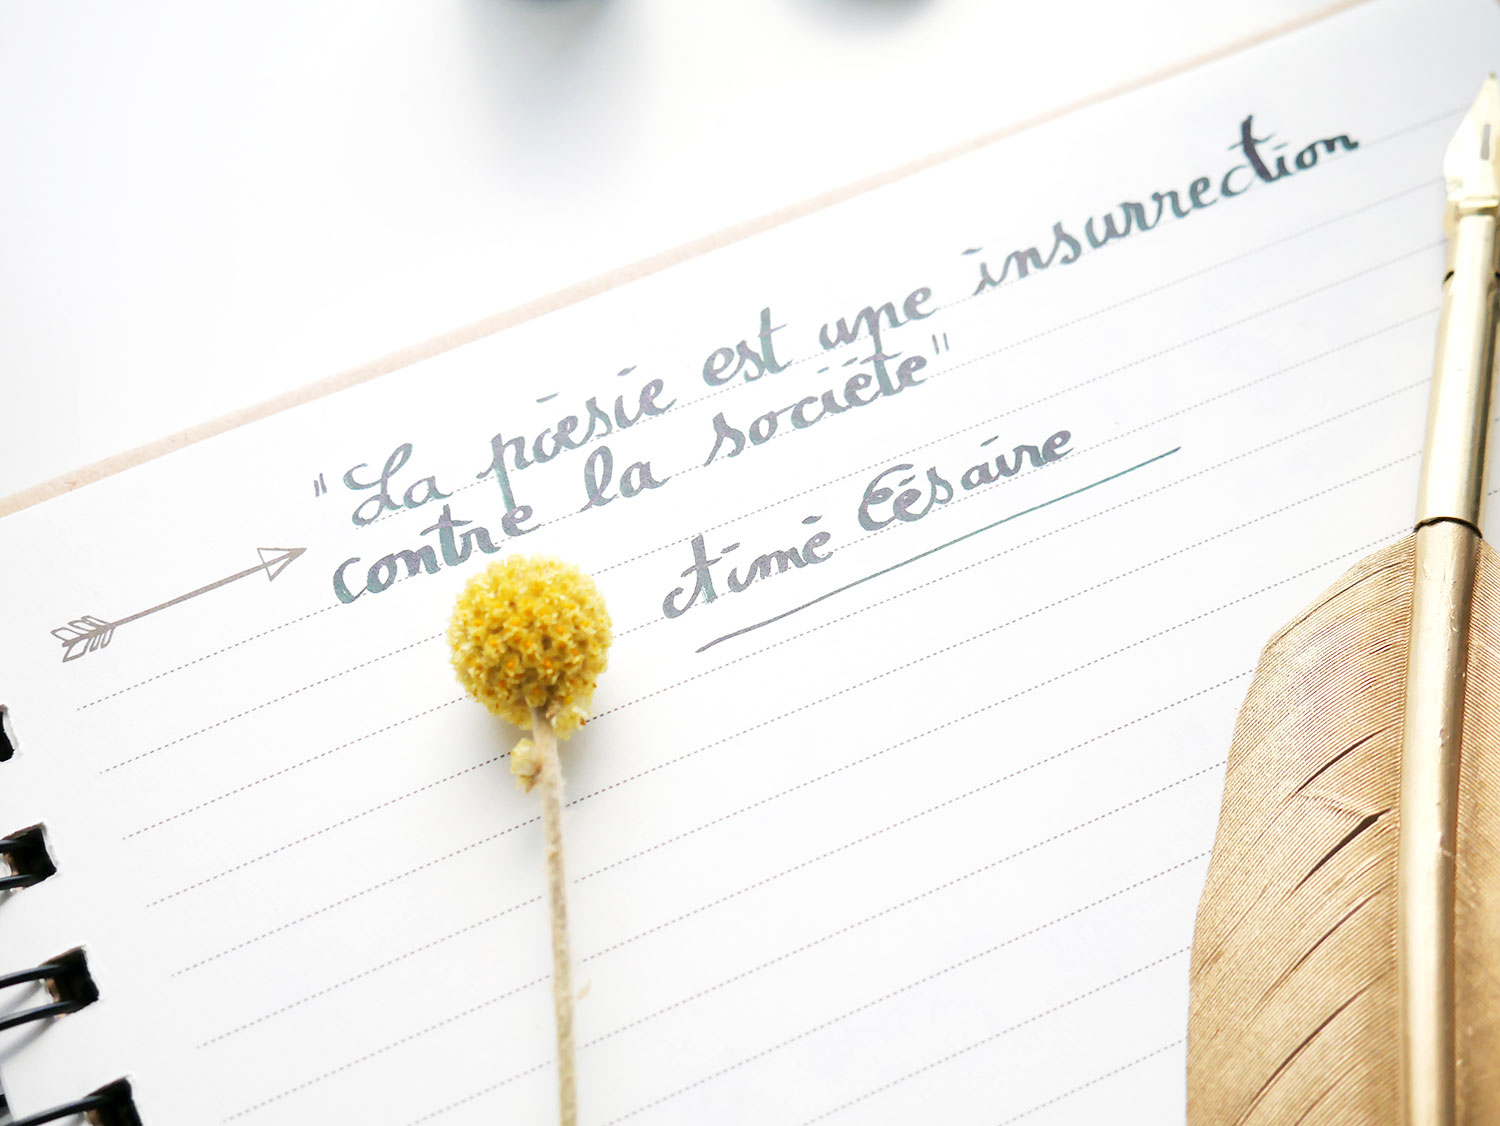 "La poèsie est une insurrection
contre la sociéte"
Aimè Césaire